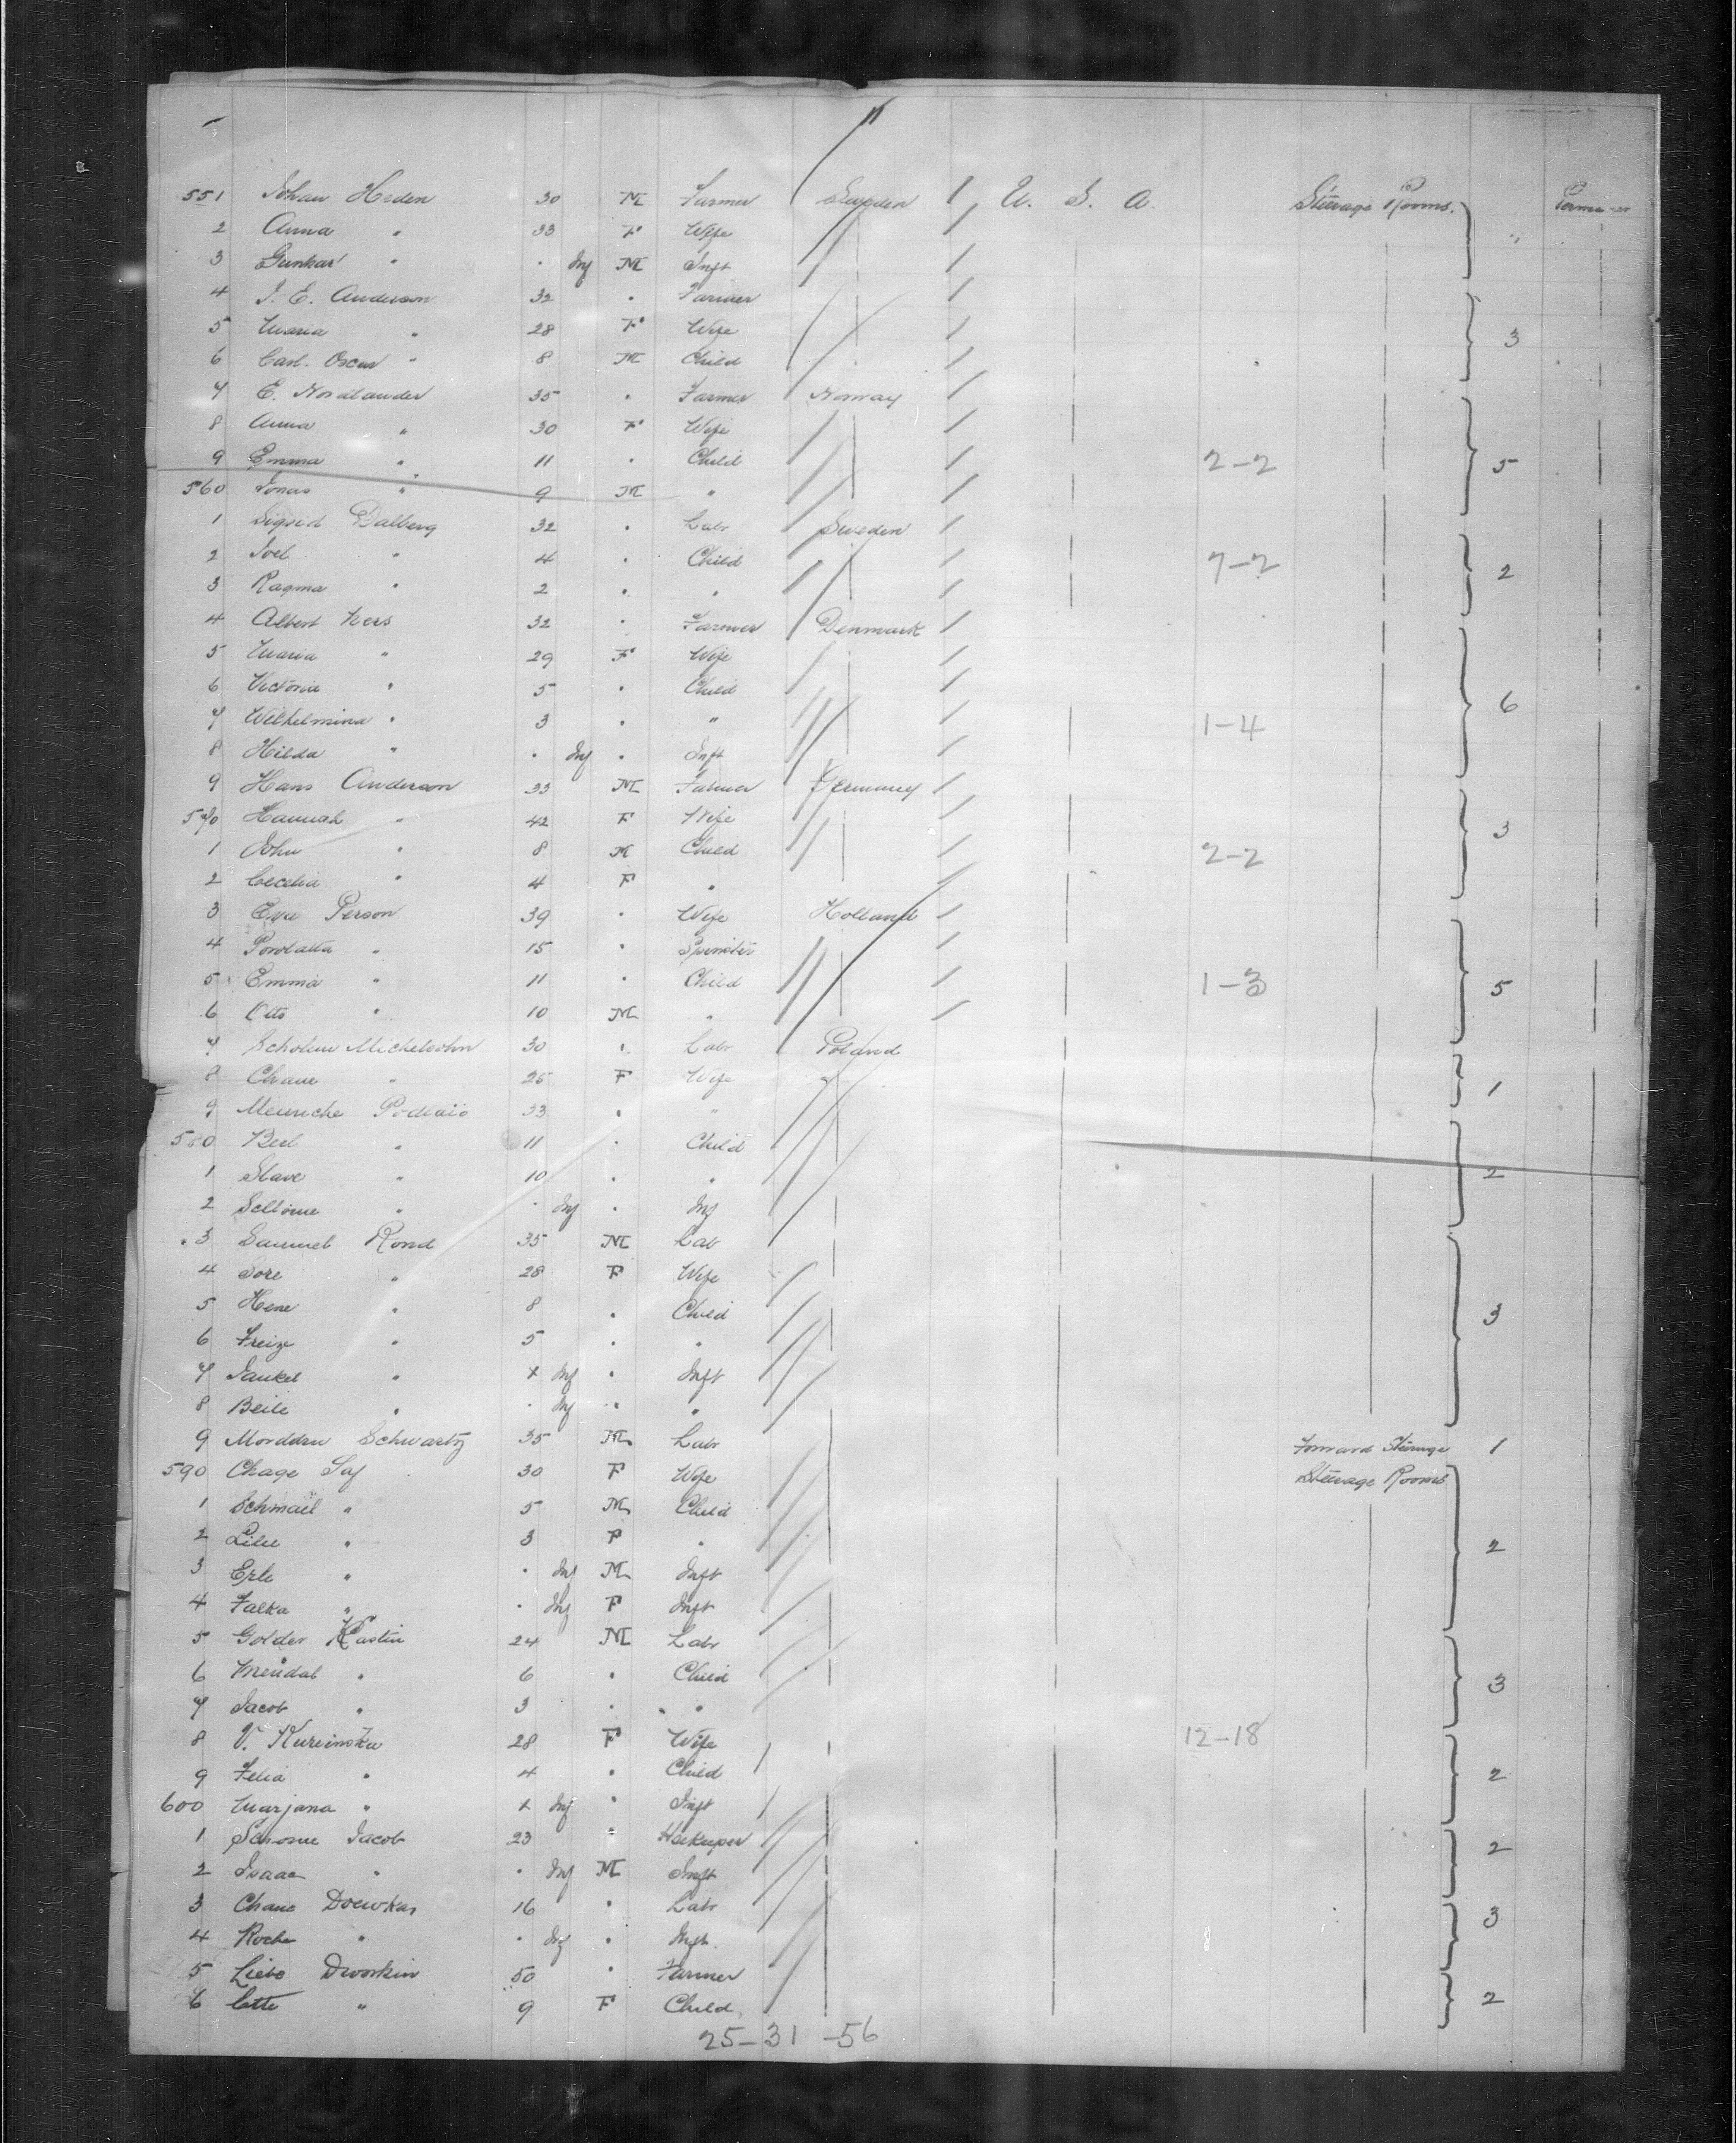 551 Johan Heden 30 M Farmer Sweden U. S. A. Steerage Rooms.
2 Anna " 33 F Wife
3 Gunhar " Inf M Inft
4 J. E. Anderson 32 " Farmer 3
5 Maria " 28 F Wife
6 Carl. Oscar " 8 M Child
7 E. Nordlander 35 " Farmer Norway
8 Anna " 30 F Wife
9 Emma " 11 " Child 2-2 5
560 Jonas " 9 M "
1 Sigrid Dalberg 32 " Labr Sweden
2 Joel " 4 " Child 7-2 2
3 Ragma " 2 " "
4 Albert 32 " Farmer Denmark
5 Maria " 29 F Wife
6 Victoria " 5 " Child
7 Wilhelmina " 3 " " 1-4 6
8 Hilda " Inf " Inft
9 Hans Anderson 33 M Farmer Germany
570 Hannah " 42 F Wife 3
1 John " 8 M Child 2-2
2 Cecelia " 4 F "
3 Eva Person 39 " Wife Holland
4 " 15 " Spinster
5 Emma " 11 " Child 1-3 5
6 Otto " 10 M "
7 Scholem Michelsohn 30 " Labr Poland
8 Chane " 25 F Wife "
9 Meusche 33 " " 1
580 Berl " 11 " Child
1 Slave " 10 " " 2
2 " Inf " Inf
3 Samuel Rond 35 M Lab
4 Sore " 28 F Wife
5 Hene " 8 " Child 3
6 Freize " 5 " "
7 Jankel " + Inf " Inft
8 Beile " Inf " "
9 Morddru Schwartz 35 M Labr Forward Steerage 1
590 Chage 30 F Wife Steerage Rooms
1 Schmail " 5 M Child
2 " 3 F " 2
3 " Inf M Inft
4 Falka " Inf F Inft
5 Golder 24 M Labr
6 Mendal " 6 " Child 3
7 Jacob " 3 " "
8 V. Kureinska 28 F Wife 12-18
9 Felia " 4 " Child 2
600 Marjana " + Inf " Inft
1 Jacob 23 " Hsekeeper 2
2 Isaac " Inf M Inft
3 Chane 16 " Labr 3
4 Roche " Inf " Inft.
5 Liebe Dworkin 50 " Farmer
6 " 9 F Child 2
25-31-56